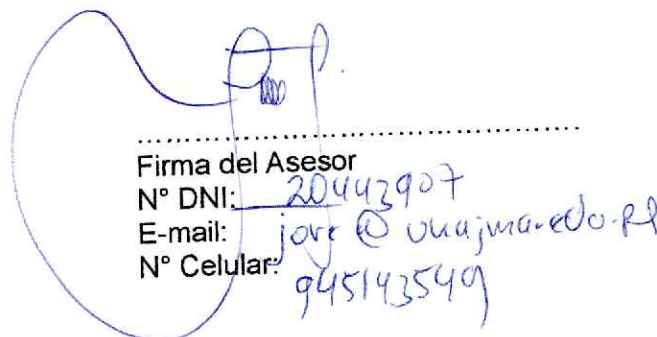 Firma del Asesor
N° DNI: 20443907
E-mail: jorge @ unajma.edu.pe
N° Celular: 945143549